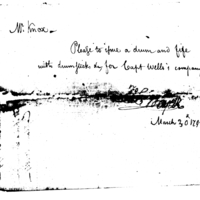 Mr. Knox—
Please to issue a drum and fife
with drumstick &c for Capt Wells's company
March 30th 179